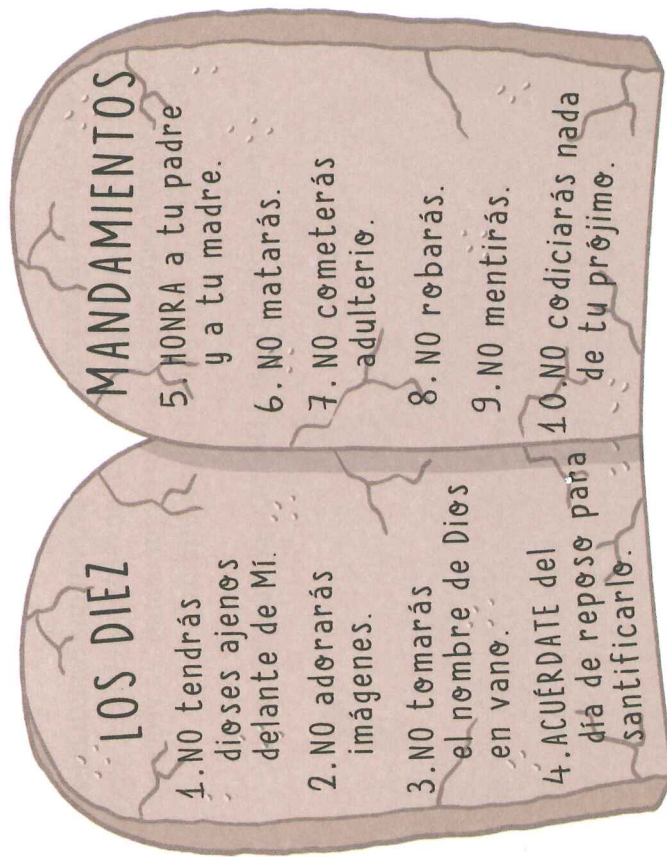 LOS DIEZ
1. NO tendrás
dioses ajenos
delante de Mí.
2. NO adorarás
imágenes.
3. NO tomarás
el nombre de Dios
en vano.
4. ACUÉRDATE del
día de reposo para
santificarlo.
MANDAMIENTOS
5. HONRA a tu padre
y a tu madre.
6. NO matarás.
7. NO cometerás
adulterio.
8. NO robarás.
9. NO mentirás.
10. NO codiciarás nada
de tu prójimo.